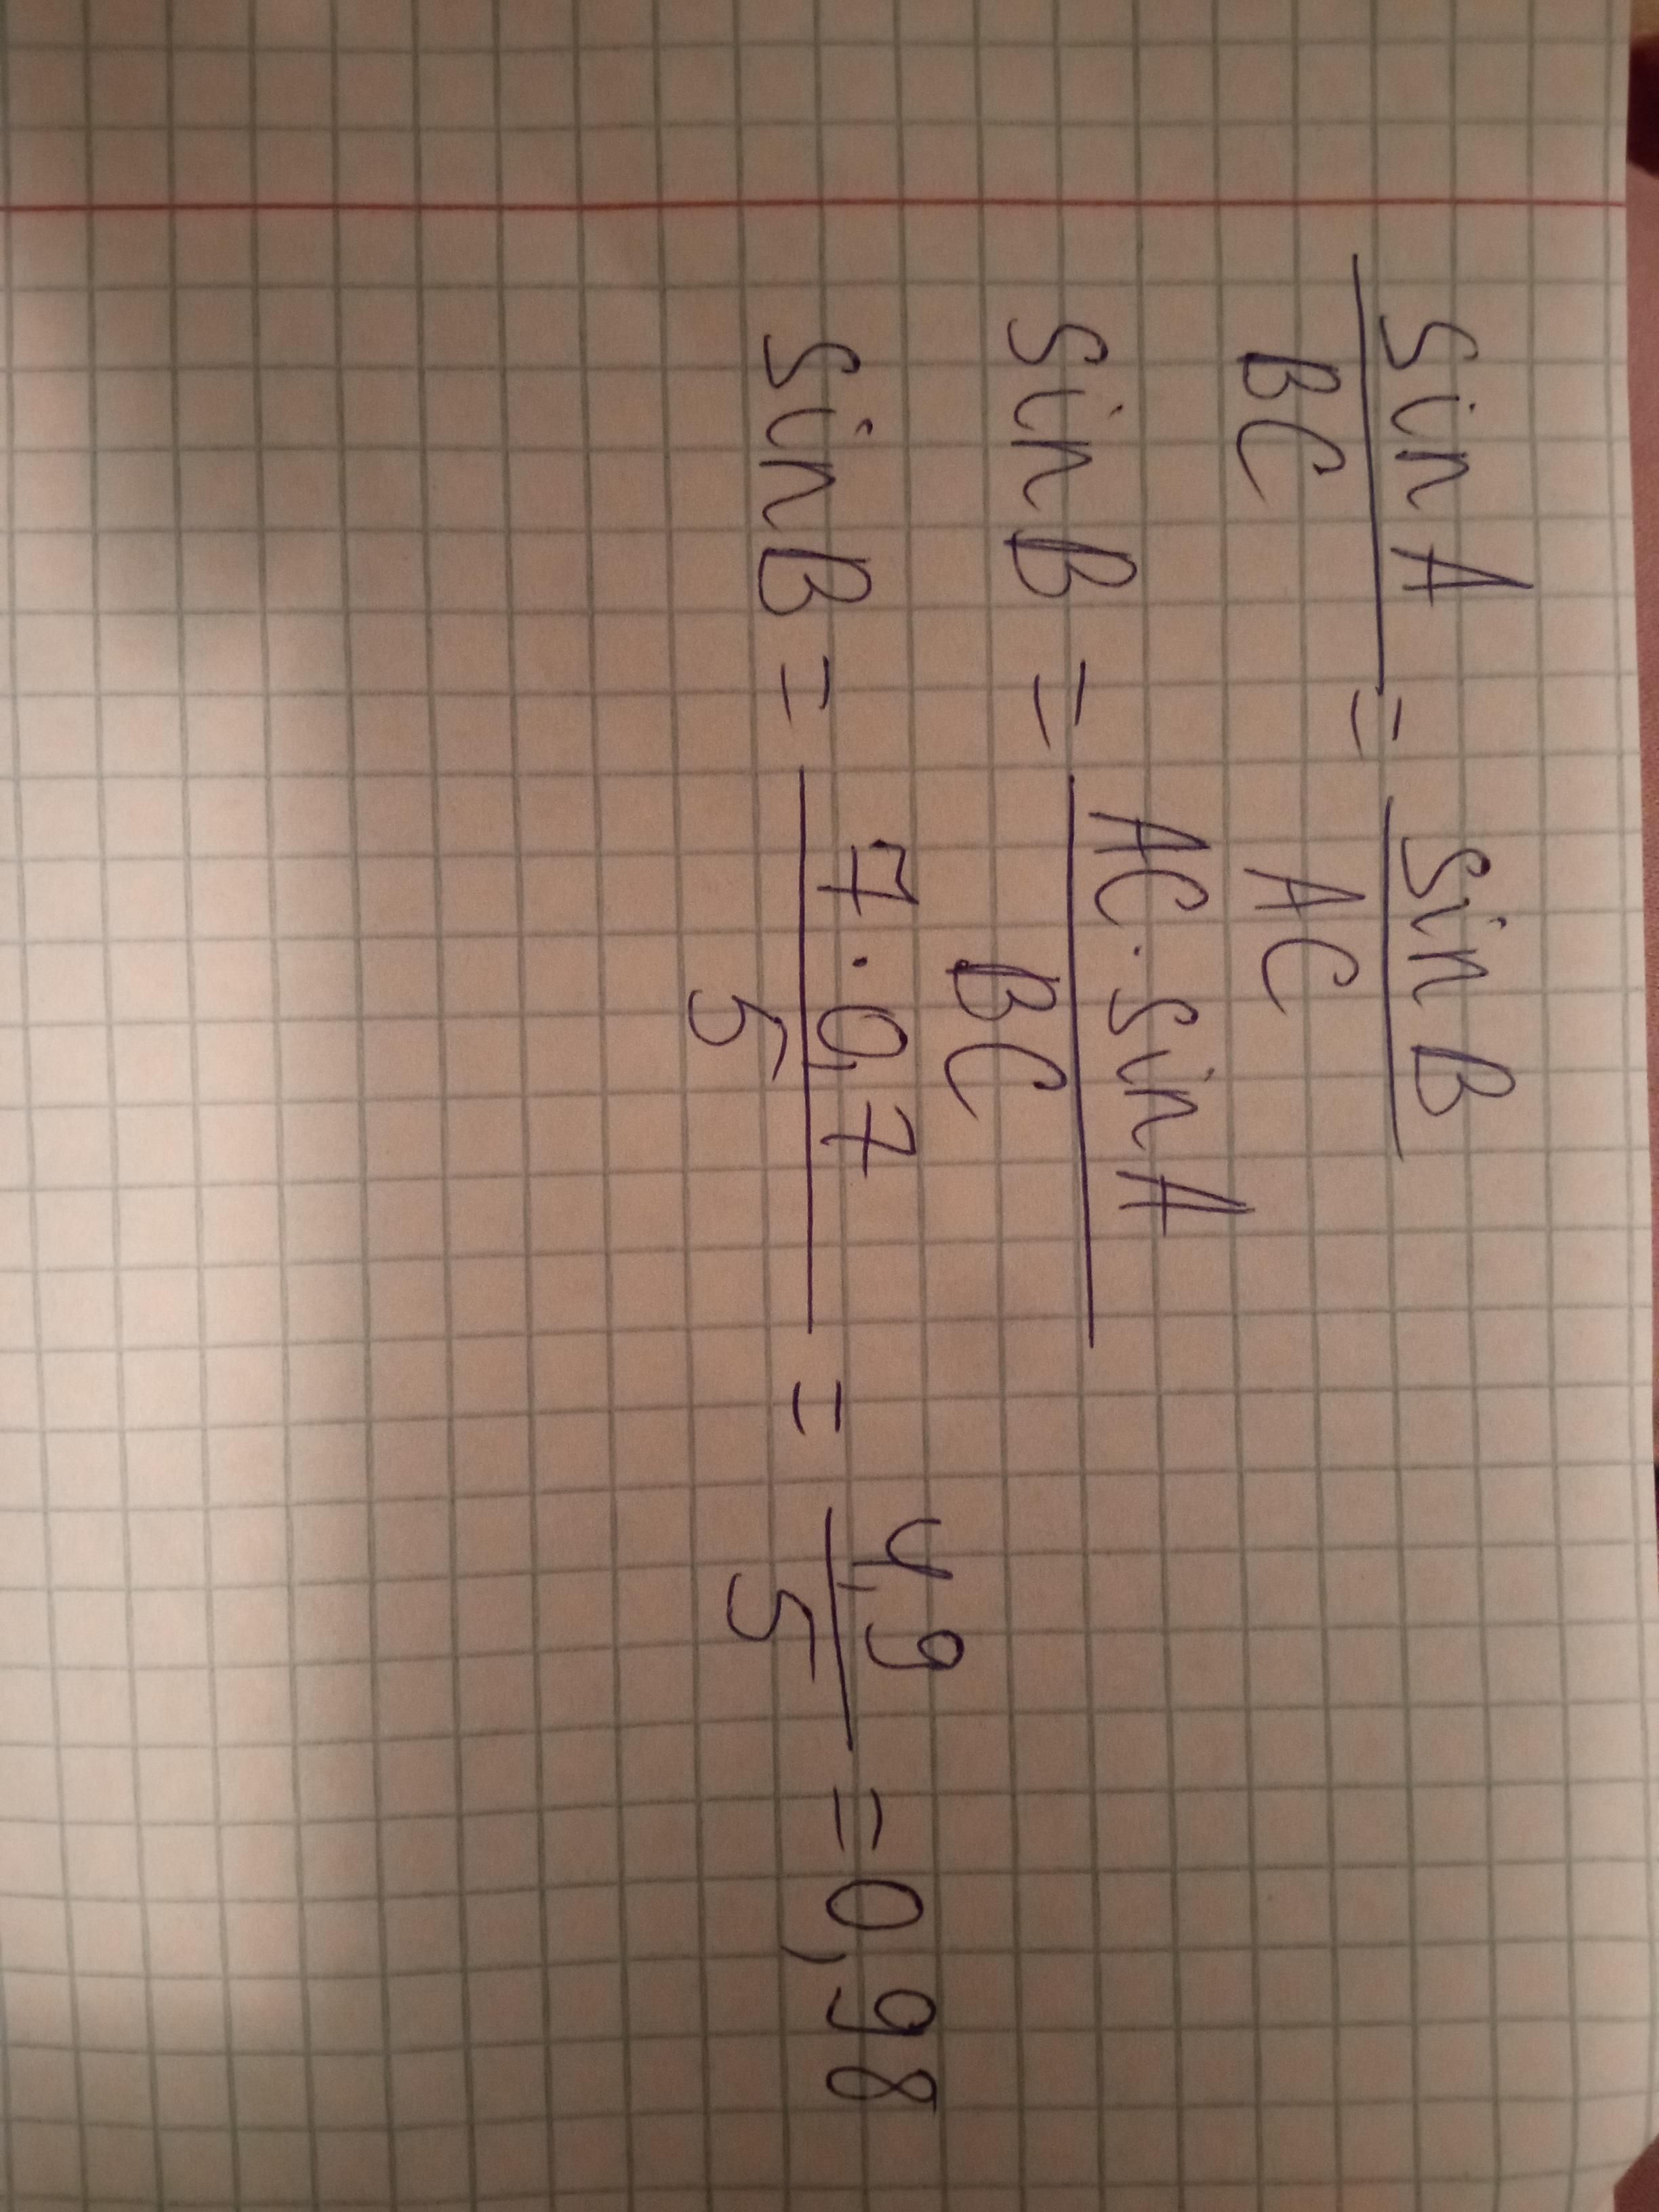 sin A / BC = sin B / AC
sin B = AC · sin A / BC
sin B = 7 · 0,7 / 5 = 4,9 / 5 = 0,98